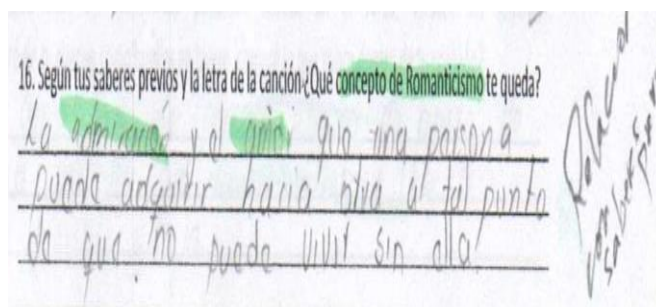 16. Según tus saberes previos y la letra de la canción ¿Qué concepto de Romanticismo te queda?
La admiración y el amor que una persona
puede adquirir hacia otra al tal punto
de que no puede vivir sin ella
Relacional
con
saberes